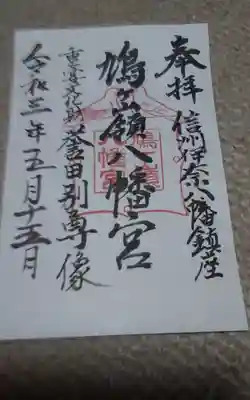 奉拝
信州伊奈八幡鎮座
鳩ヶ嶺八幡宮
重要文化財 誉田別尊像
令和三年五月十五日